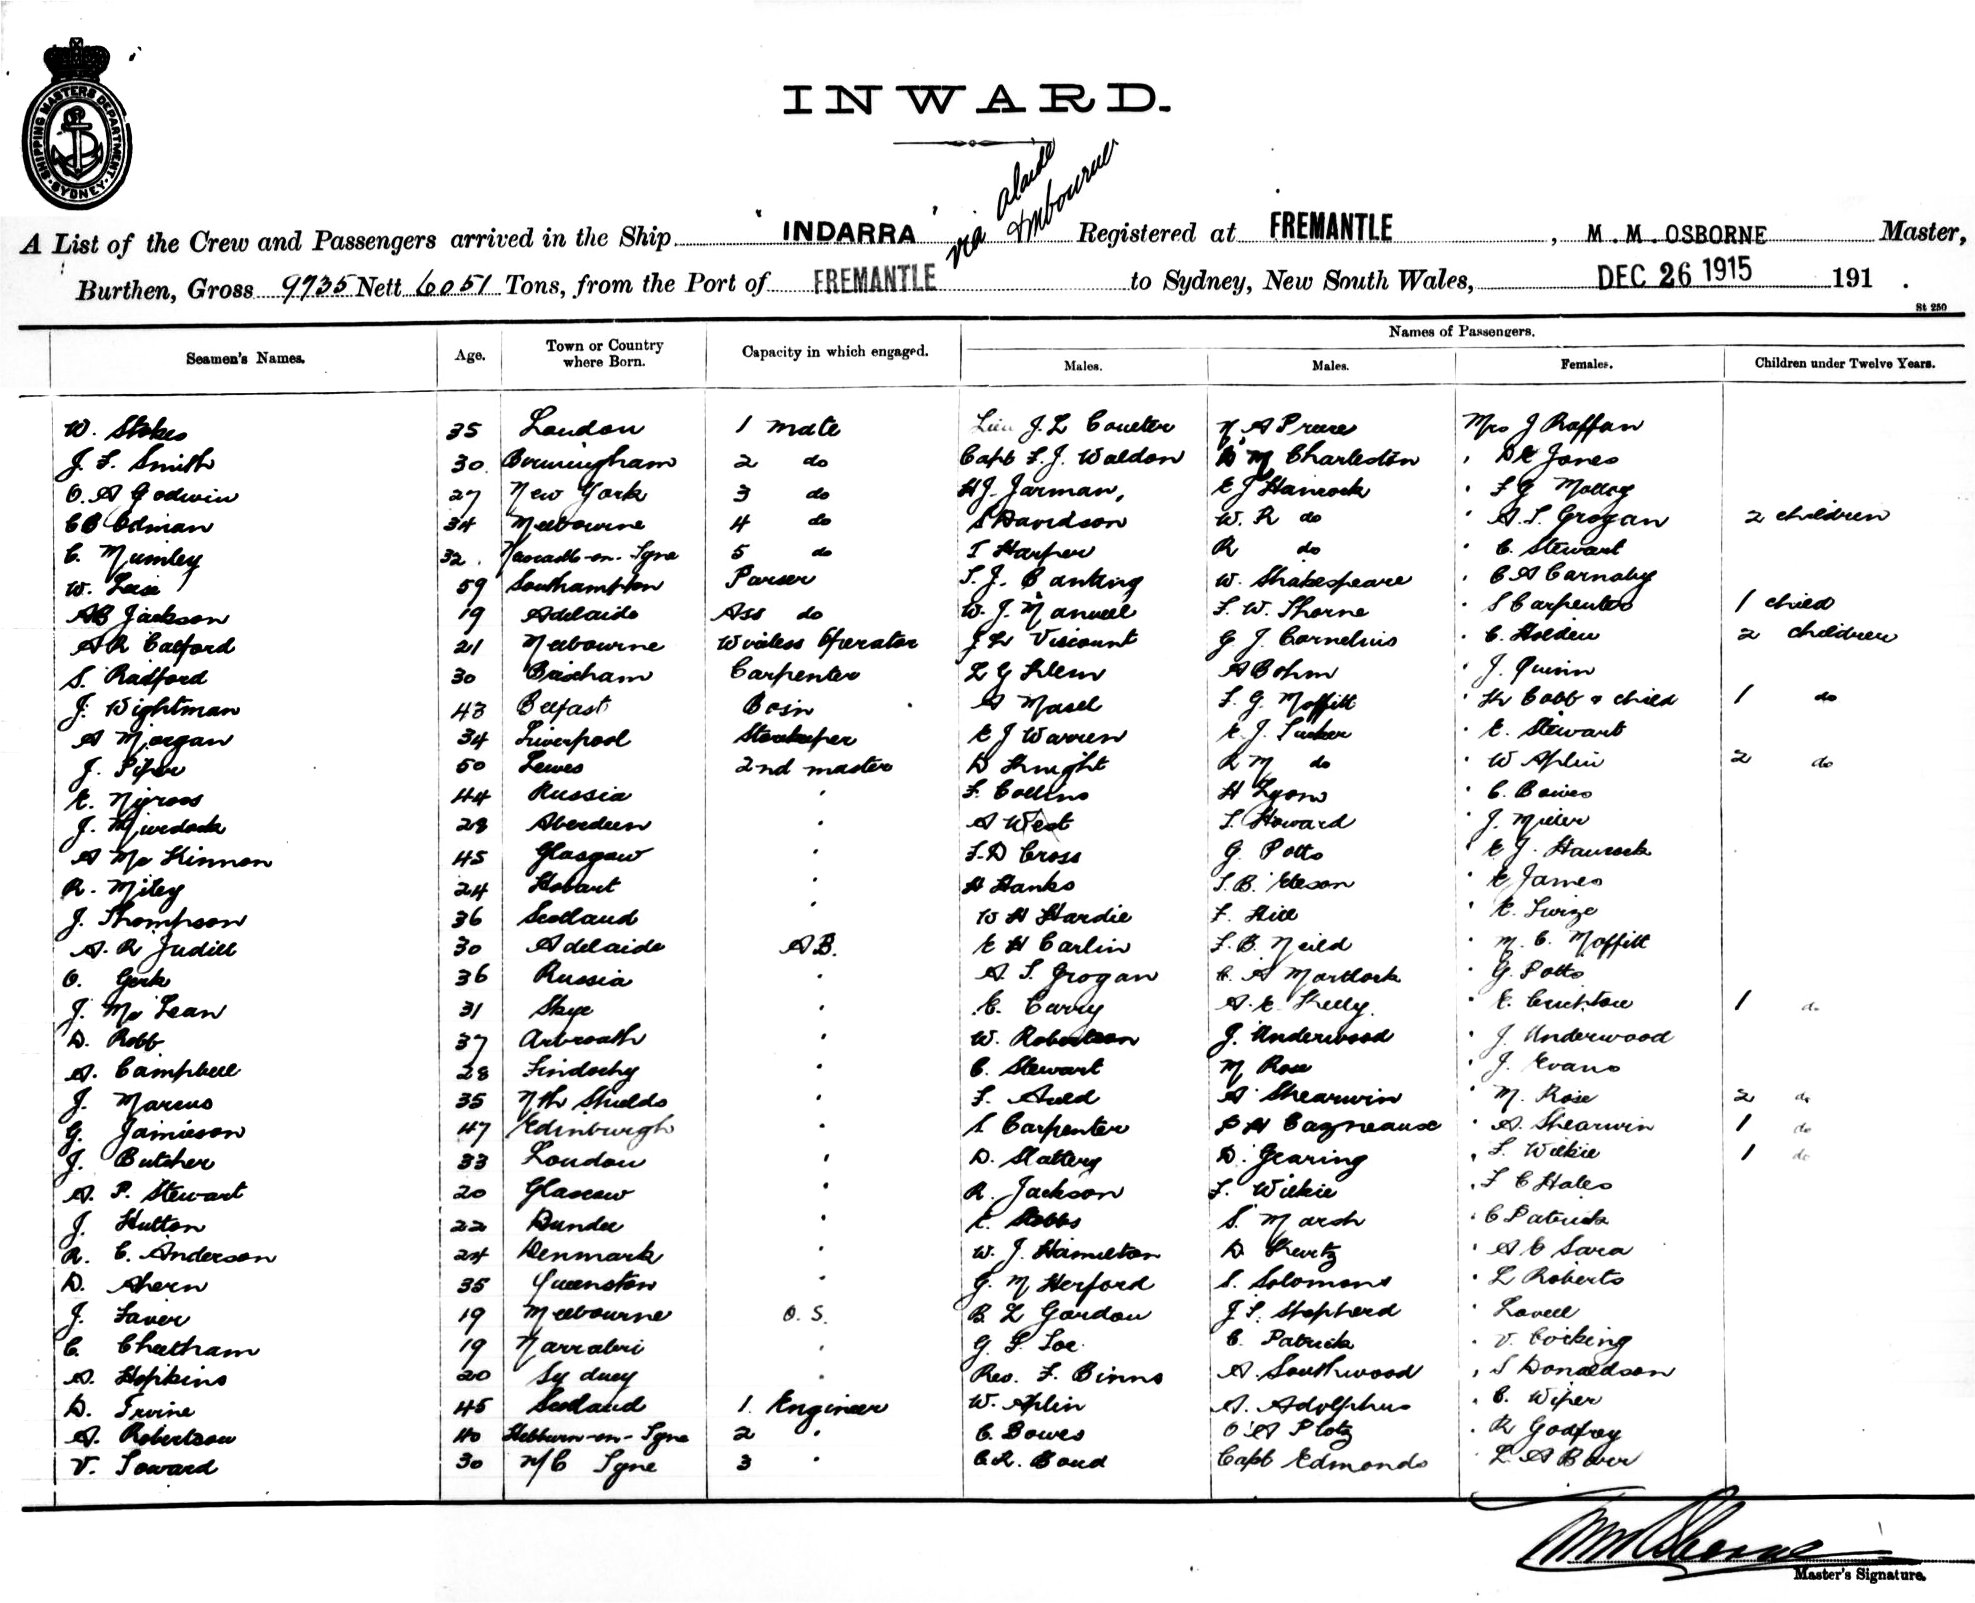 SHIPPING MASTERS DEPARTMENT. SYDNEY.
INWARD.
A List of the Crew and Passengers arrived in the Ship "INDARRA" via Registered at FREMANTLE, M. M. OSBORNE Master,
Burthen, Gross 9735 Nett 6051 Tons, from the Port of FREMANTLE to Sydney, New South Wales, DEC 26 1915 191 .
St 250
Names of Passengers.
Seamen's Names. Age. Town or Country where Born. Capacity in which engaged. Males. Males. Females. Children under Twelve Years.
W. Stokes 35 London 1 mate J. L Coulter Mrs J Raffan
J. F. Smith 30 Birmingham 2 do Capt F. J. Waldon M Charleston " Jones
O. A Godwin 27 New York 3 do H J. Jarman, E J Hancock " F G Molloy
C B Edman 34 Melbourne 4 do S Davidson W. R do " A. S. Grogan 2 children
C. Mumley 32. Newcastle-on-Tyne 5 do T Harper R do " C. Stewart
W. 59 Southampton Purser S. J. Banting W. Shakespeare " C A Carnaby
A B Jackson 19 Adelaide Ass do W. J. Manuell F. W. Thorne " S Carpenter 1 child
A R Calford 21 Melbourne Wireless Operator J L Viscount G J. Cornelius " C. Holden 2 children
S. Radford 30 Brixham Carpenter L G A Bohm " J. Quinn
J. Wightman 43 Belfast Bosn A Masel F. G. Moffitt " H Cobb & child 1 do
A Morgan 34 Liverpool Storekeeper E J Warren E. J. Tucker " E. Stewart
J. Piper 50 Lewes 2nd master D Knight R M do " W Aplin 2 do
E. Nigroos 44 Russia " F. Collins H Lyons " C. Bowes
J. Murdock 28 Aberdeen " A West S. Howard " J. Miller
A Mc Kinnon 45 Glasgow " F. D Cross G. Potts " E J. Hancock
R. Miley 24 Hobart " H Hanks S. B. " E James
J. Thompson 36 Scotland " W H Hardie F. Hill " E.
A. R Judill 30 Adelaide A B. E H Carlin F. B. Neild " M. C. Moffitt
O. Gerk 36 Russia " A. S. Grogan C. A Mortlock " G. Potts
J. Mc Lean 31 Skye " C. Carry A. E. Kelly. " E. Crichton 1 do
D. Robb 37 Arbroath " W. Robertson J. Underwood " J. Underwood
A. Campbell 28 Findochy " C. Stewart M Rose " J. Evans
J. Marcus 35 Nth Shields " F. Auld A Shearwin " M. Rose 2 do
G. Jamieson 47 Edinburgh " S Carpenter P H Cazneaux " A. Shearwin 1 do
J. Butcher 33 London " D. Slattery D. Gearing " F. Wilkie 1 do
A. P. Stewart 20 Glasgow " R. Jackson F. Wilkie " F C Hales
J. Hutton 22 Dundee " E. Stobbs S. Marsh " C Patrick
R. C. Anderson 24 Denmark " W. J. Hamilton D " A C Sara
D. Ahern 35 Queenston " G. N Herford S. Solomons " L Roberts
J. Faver 19 Melbourne O. S. B. L Gordon J S. Shepherd " Lovell
C. Cheetham 19 Narrabri " G. F. C. Patrick " V. Cocking
A. Hopkins 20 Sydney " Rev. F. Binns A. Southwood " S Donaldson
D. Irvine 45 Scotland 1. Engineer W. Aplin A. Adolphus " C. Wiper
A. Robertson 40 Hebburn-on-Tyne 2 " C. Bowes O'A Plotz " R Godfrey
V. Toward 30 N/C Tyne 3 " C. R. Bond Capt Edmonds " L. A
M M Osborne
Master's Signature.